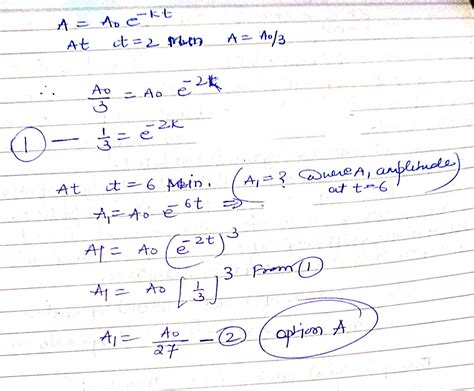 A = A₀ e^-kt
At t=2 Min A = A₀/3
∴ A₀/3 = A₀ e^-2k
① — 1/3 = e^-2k
At t=6 Min. (A₁=? where A₁ amplitude at t=6)
A₁ = A₀ e^-6t ⇒
A₁ = A₀ (e^-2t)^3
A₁ = A₀ [1/3]^3 From ①
A₁ = A₀/27 — ② option A